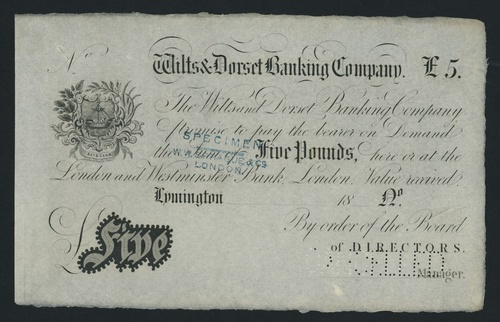 No Wilts & Dorset Banking Company. £5.
The Wilts and Dorset Banking Company
promise to pay the bearer on Demand
the Sum of Five Pounds, here or at the
London and Westminster Bank, London. Value received.
SPECIMEN
LONDON
Lymington 18 No
By order of the Board
of DIRECTORS.
£ Five
CANCELLED
Manager.